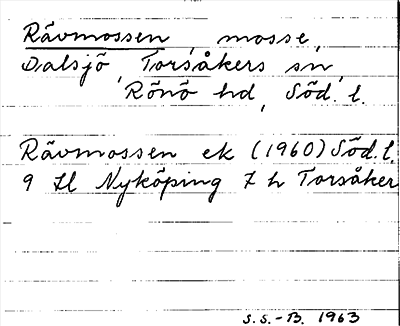 Rävmossen, mosse,
Dalsjö, Torsåkers sn,
Rönö hd, Söd. l.
Rävmossen ek (1960) Söd. l.
9 H Nyköping 7 h Torsåker
S.S.-B. 1963